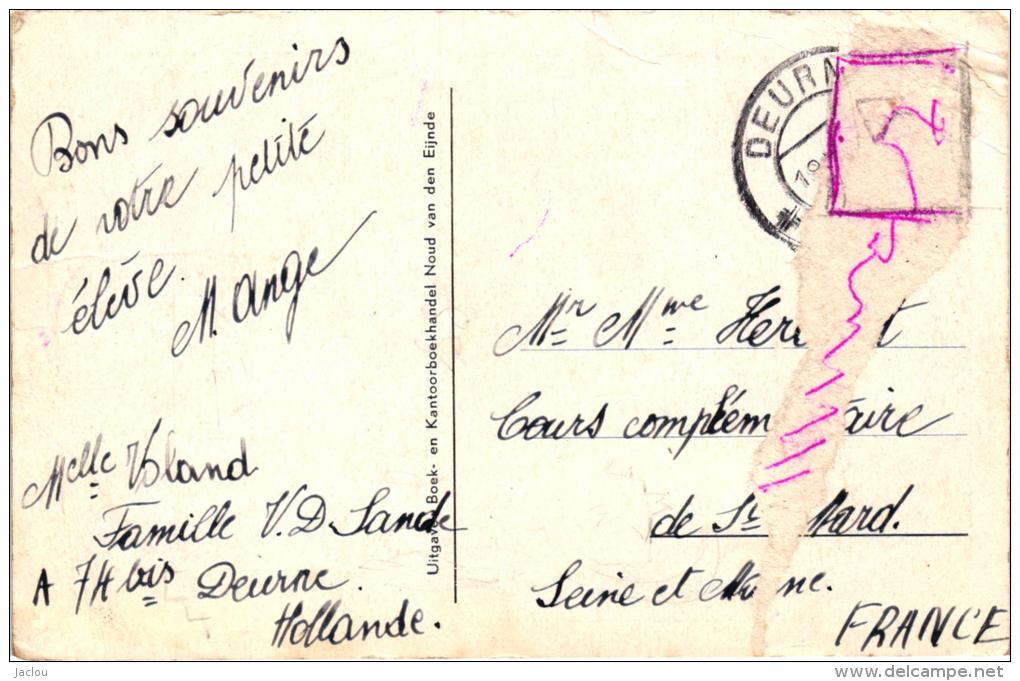 Bons souvenirs
de votre petite
élève.
M. Ange
Melle Voland
Famille V.D. Sande
A 74 bis Deurne.
Hollande.
Uitgave Boek- en Kantoorboekhandel Noud van den Eijnde
DEURN
Mr Mme
Cours complém aire
de St Mard.
Seine et Ma ne.
FRANCE
jaclou
www.delcampe.net